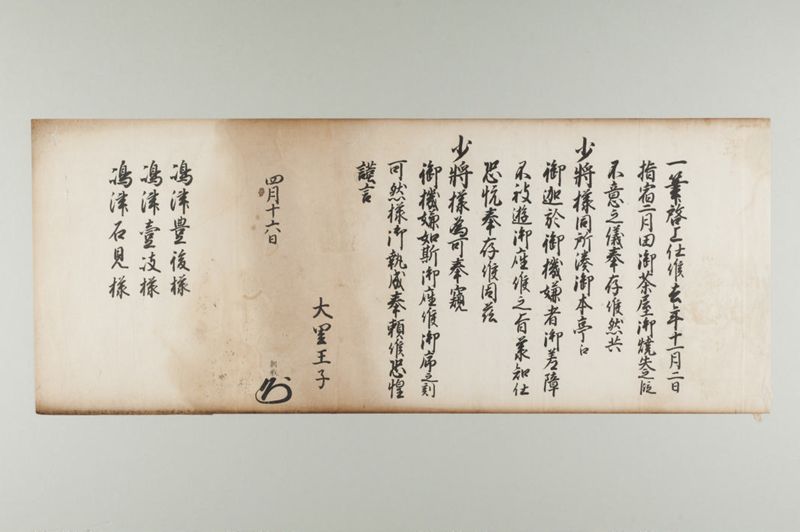 一筆啓上仕候去年十一月二日
指宿二月田御茶屋御焼失之段
不意之儀奉存候然共
少将様同所湊御本亭江
御迦於御機嫌者御差障
不被遊御座候之旨承知仕
恐悦奉存候因茲
少将様為可奉窺
御機嫌如斯御座候御席之刻
可然様御執成奉頼候恐惶
謹言
四月十六日
大里王子
朝教
嶋津豊後様
嶋津壹岐様
嶋津石見様